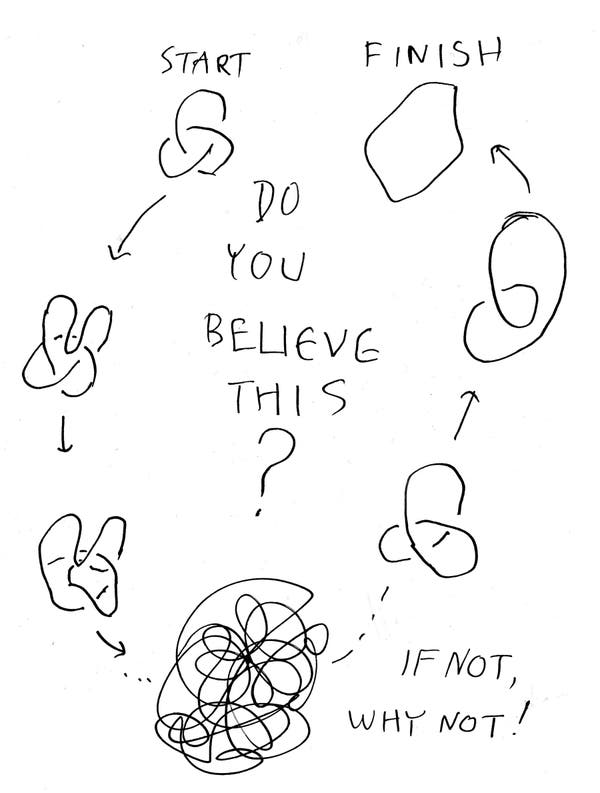 START
FINISH
DO
YOU
BELIEVE
THIS
?
IF NOT,
WHY NOT!